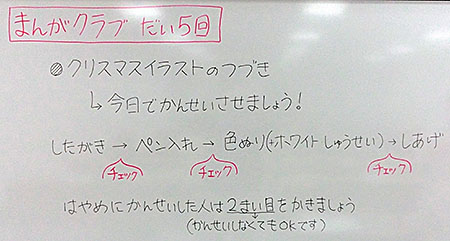 まんがクラブ だい5回
◎クリスマスイラストのつづき
↳今日でかんせいさせましょう!
したがき→ペン入れ→色ぬり(+ホワイトしゅうせい)→しあげ
チェック チェック チェック
はやめにかんせいした人は2まい目をかきましょう
(かんせいしなくてもOKです)